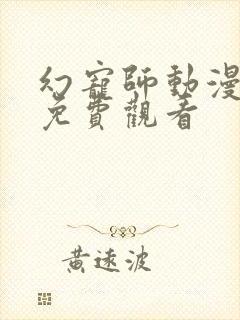 幻寵師動漫
免費觀看
黃遠波